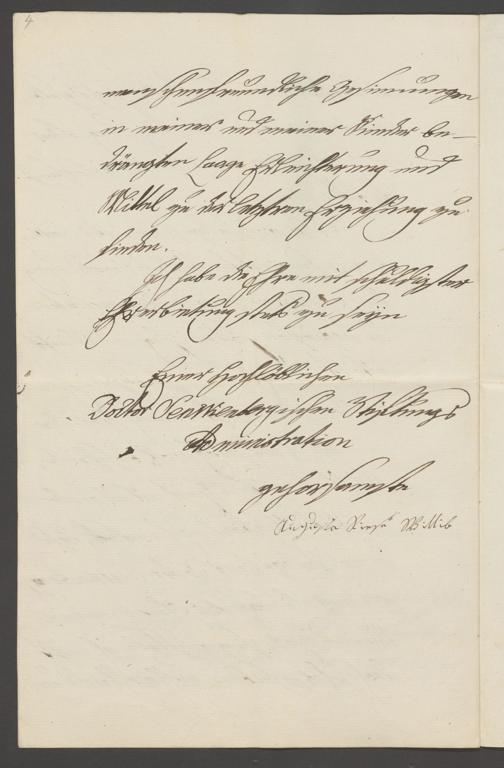 4
menschenfreundliche Gesinnungen
in meiner und meiner Kinder be-
drängten Laage Erleichterung und
Mittel zu der letztren Erziehung zu
finden.
Ich habe die Ehre mit schuldigster
Ehrerbietung stets zu seyn
Einer Hochlöblichen
Doctor Senkenbergischen Stiftungs
Administration
gehorsamste
Augusta Wittib